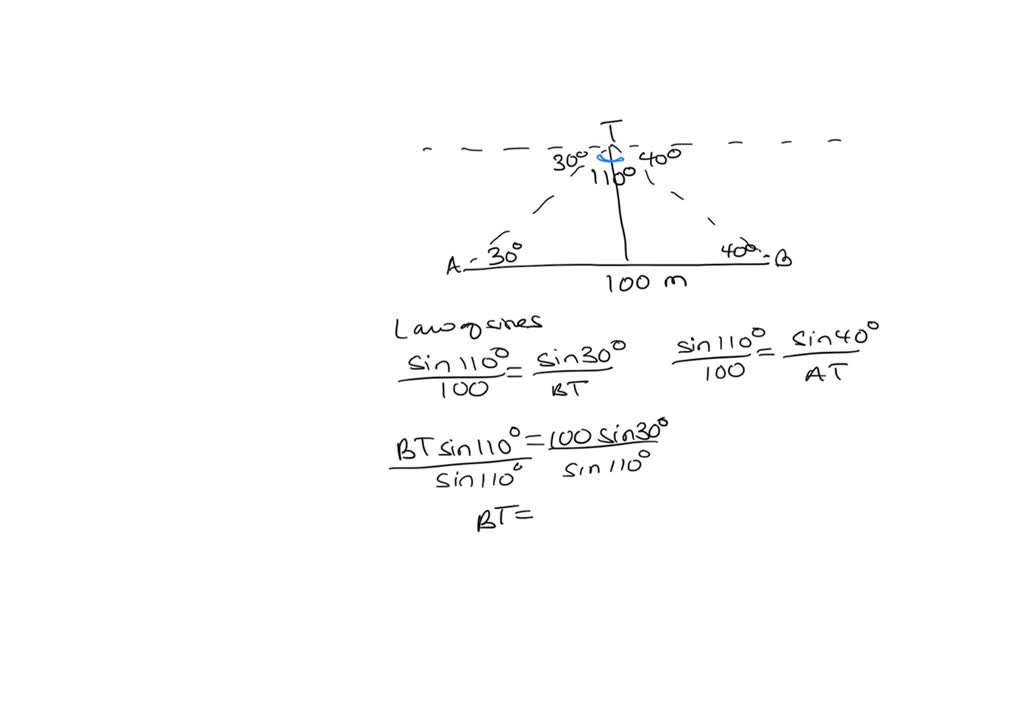 T
30° 40°
110°
A 30° 40° B
100 m
Law of sines
sin 110°/100 = sin 30°/BT sin 110°/100 = sin 40°/AT
BT sin 110°/sin 110° = 100 sin 30°/sin 110°
BT =